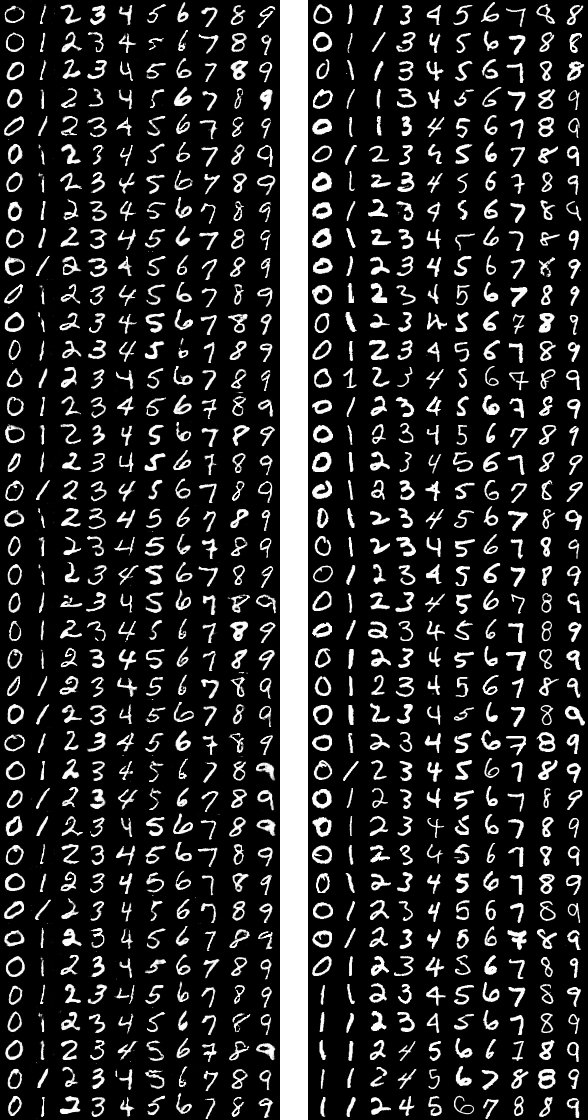 0 1 2 3 4 5 6 7 8 9
0 1 2 3 4 5 6 7 8 9
0 1 2 3 4 5 6 7 8 9
0 1 2 3 4 5 6 7 8 9
0 1 2 3 4 5 6 7 8 9
0 1 2 3 4 5 6 7 8 9
0 1 2 3 4 5 6 7 8 9
0 1 2 3 4 5 6 7 8 9
0 1 2 3 4 5 6 7 8 9
0 1 2 3 4 5 6 7 8 9
0 1 2 3 4 5 6 7 8 9
0 1 2 3 4 5 6 7 8 9
0 1 2 3 4 5 6 7 8 9
0 1 2 3 4 5 6 7 8 9
0 1 2 3 4 5 6 7 8 9
0 1 2 3 4 5 6 7 8 9
0 1 2 3 4 5 6 7 8 9
0 1 2 3 4 5 6 7 8 9
0 1 2 3 4 5 6 7 8 9
0 1 2 3 4 5 6 7 8 9
0 1 2 3 4 5 6 7 8 9
0 1 2 3 4 5 6 7 8 9
0 1 2 3 4 5 6 7 8 9
0 1 2 3 4 5 6 7 8 9
0 1 2 3 4 5 6 7 8 9
0 1 2 3 4 5 6 7 8 9
0 1 2 3 4 5 6 7 8 9
0 1 2 3 4 5 6 7 8 9
0 1 2 3 4 5 6 7 8 9
0 1 2 3 4 5 6 7 8 9
0 1 2 3 4 5 6 7 8 9
0 1 2 3 4 5 6 7 8 9
0 1 2 3 4 5 6 7 8 9
0 1 2 3 4 5 6 7 8 9
0 1 2 3 4 5 6 7 8 9
0 1 2 3 4 5 6 7 8 9
0 1 2 3 4 5 6 7 8 9
0 1 2 3 4 5 6 7 8 9
0 1 2 3 4 5 6 7 8 9
0 1 2 3 4 5 6 7 8 9
0 1 1 3 4 5 6 7 8 8
0 1 1 3 4 5 6 7 8 8
0 1 1 3 4 5 6 7 8 8
0 1 1 3 4 5 6 7 8 9
0 1 1 3 4 5 6 7 8 9
0 1 2 3 4 5 6 7 8 9
0 1 2 3 4 5 6 7 8 9
0 1 2 3 4 5 6 7 8 9
0 1 2 3 4 5 6 7 8 9
0 1 2 3 4 5 6 7 8 9
0 1 2 3 4 5 6 7 8 9
0 1 2 3 4 5 6 7 8 9
0 1 2 3 4 5 6 7 8 9
0 1 2 3 4 5 6 7 8 9
0 1 2 3 4 5 6 7 8 9
0 1 2 3 4 5 6 7 8 9
0 1 2 3 4 5 6 7 8 9
0 1 2 3 4 5 6 7 8 9
0 1 2 3 4 5 6 7 8 9
0 1 2 3 4 5 6 7 8 9
0 1 2 3 4 5 6 7 8 9
0 1 2 3 4 5 6 7 8 9
0 1 2 3 4 5 6 7 8 9
0 1 2 3 4 5 6 7 8 9
0 1 2 3 4 5 6 7 8 9
0 1 2 3 4 5 6 7 8 9
0 1 2 3 4 5 6 7 8 9
0 1 2 3 4 5 6 7 8 9
0 1 2 3 4 5 6 7 8 9
0 1 2 3 4 5 6 7 8 9
0 1 2 3 4 5 6 7 8 9
0 1 2 3 4 5 6 7 8 9
0 1 2 3 4 5 6 7 8 9
0 1 2 3 4 5 6 7 8 9
0 1 2 3 4 5 6 7 8 9
1 1 2 3 4 5 6 7 8 9
1 1 2 3 4 5 6 7 8 9
1 1 2 4 5 6 6 1 8 9
1 1 2 4 5 6 7 8 8 9
1 1 2 4 5 6 7 8 8 9